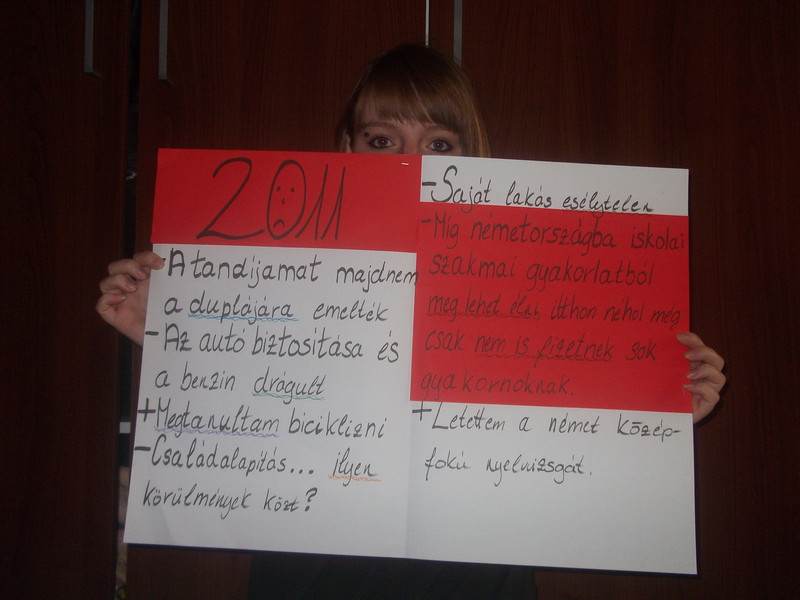 2011
- A tandíjamat majdnem
a duplájára emelték
- Az autó biztosítása és
a benzin drágult
+ Megtanultam biciklizni
- Családalapítás... ilyen
körülmények közt?
- Saját lakás esélytelen
- Míg németországba iskolai
szakmai gyakorlatból
meg lehet élni itthon néhol még
csak nem is fizetnek sok
gyakornoknak.
+ Letettem a német közép-
fokú nyelvizsgát.